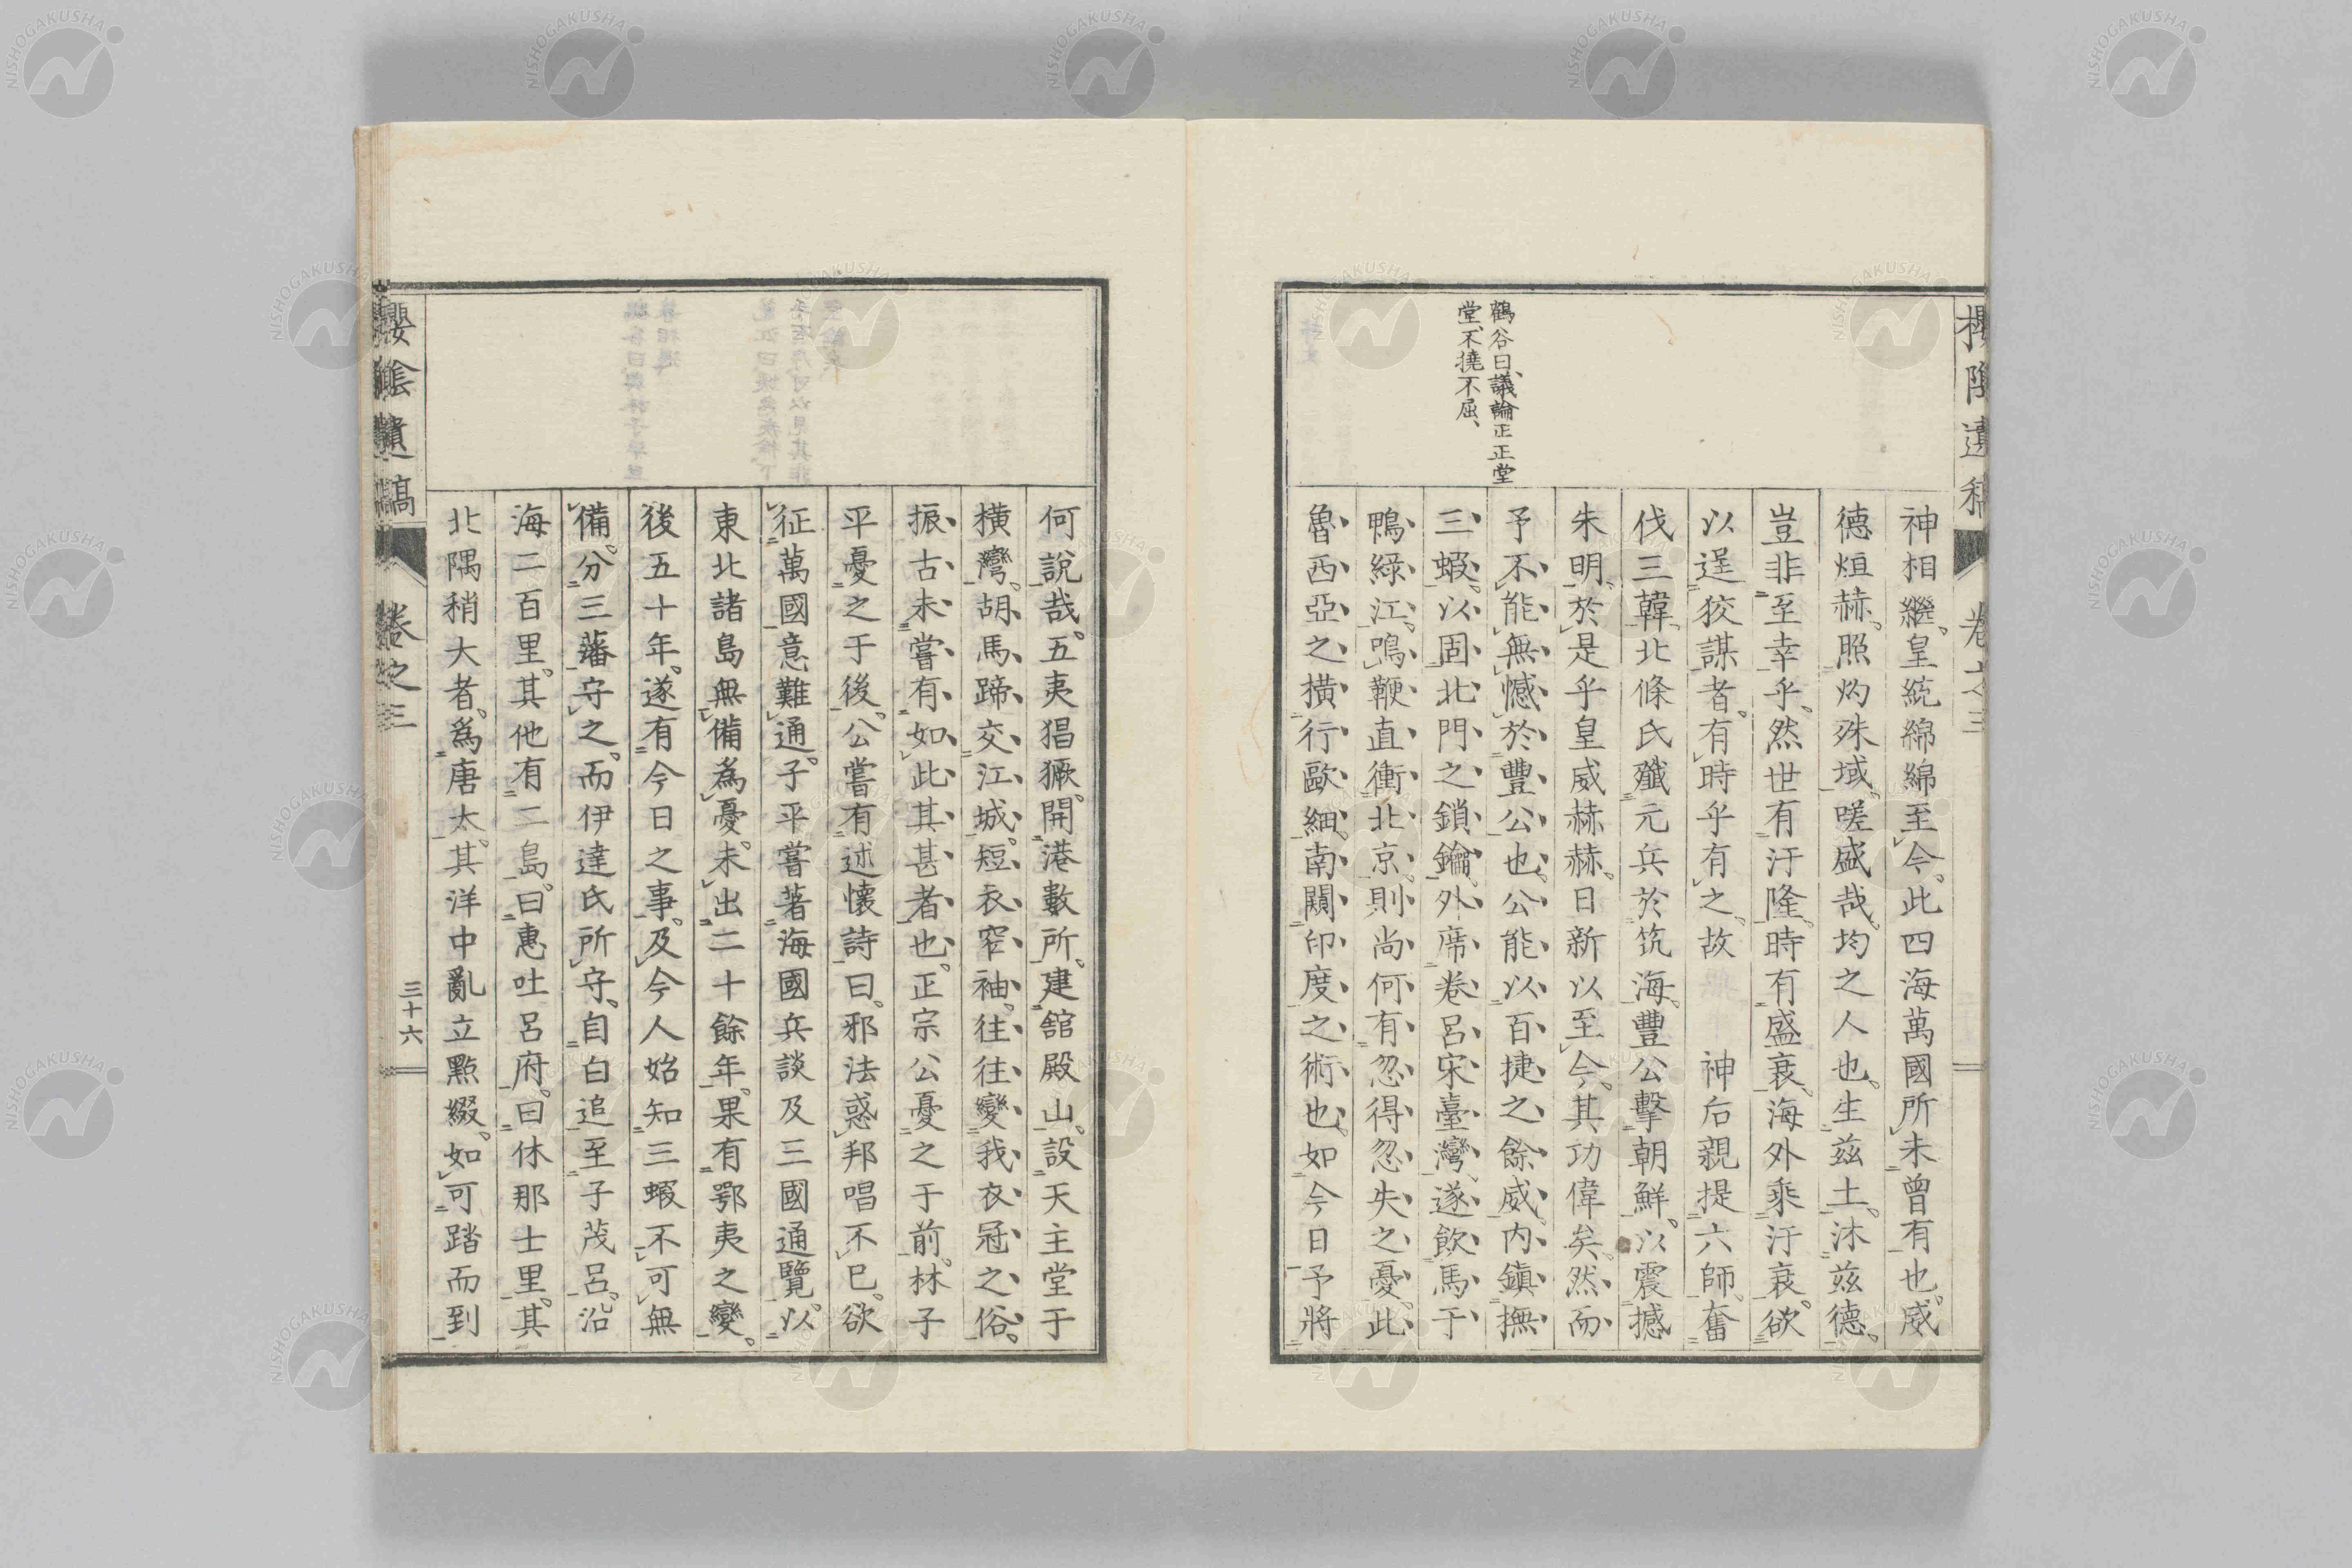 神相繼。皇統綿綿至今。此四海萬國所未曾有也。威
德烜赫。照灼殊域。嗟盛哉。均之人也。生茲土。沐茲德。
豈非至幸乎。然世有汙隆。時有盛衰。海外乘汙衰。欲
以逞狡謀者。有時乎有之。故 神后親提六師。奮
伐三韓。北條氏殲元兵於筑海。豐公擊朝鮮。以震撼
朱明。於是乎皇威赫赫。日新以至今。其功偉矣。然而
予不能無憾於豐公也。公能以百捷之餘威。内鎮撫
三蝦。以固北門之鎖鑰。外席卷呂宋臺灣。遂飲馬于
鴨綠江。鳴鞭直衝北京。則尚何有忽得忽失之憂。此
魯西亞之橫行歐細。南闢印度之術也。如今日予將
鶴谷曰、議論正正堂
堂、不撓不屈、
櫻陰遺稿
卷之三
何說哉。五夷猖獗。開港數所。建舘殿山。設天主堂于
橫灣。胡馬蹄交江城。短衣窄袖。往往變我衣冠之俗。
振古未嘗有如此其甚者也。正宗公憂之于前。林子
平憂之于後。公嘗有述懷詩曰。邪法惑邦唱不已。欲
征萬國意難通。子平嘗著海國兵談及三國通覽。以
東北諸島無備為憂。未出二十餘年。果有鄂夷之變。
後五十年。遂有今日之事。及今人始知三蝦不可無
備。分三藩守之。而伊達氏所守、自白追至子茂呂。沿
海二百里。其他有二島。曰惠吐呂府。曰休那士里。其
北隅稍大者。為唐太。其洋中亂立點綴。如可踏而到
櫻陰遺稿
卷之三
三十六